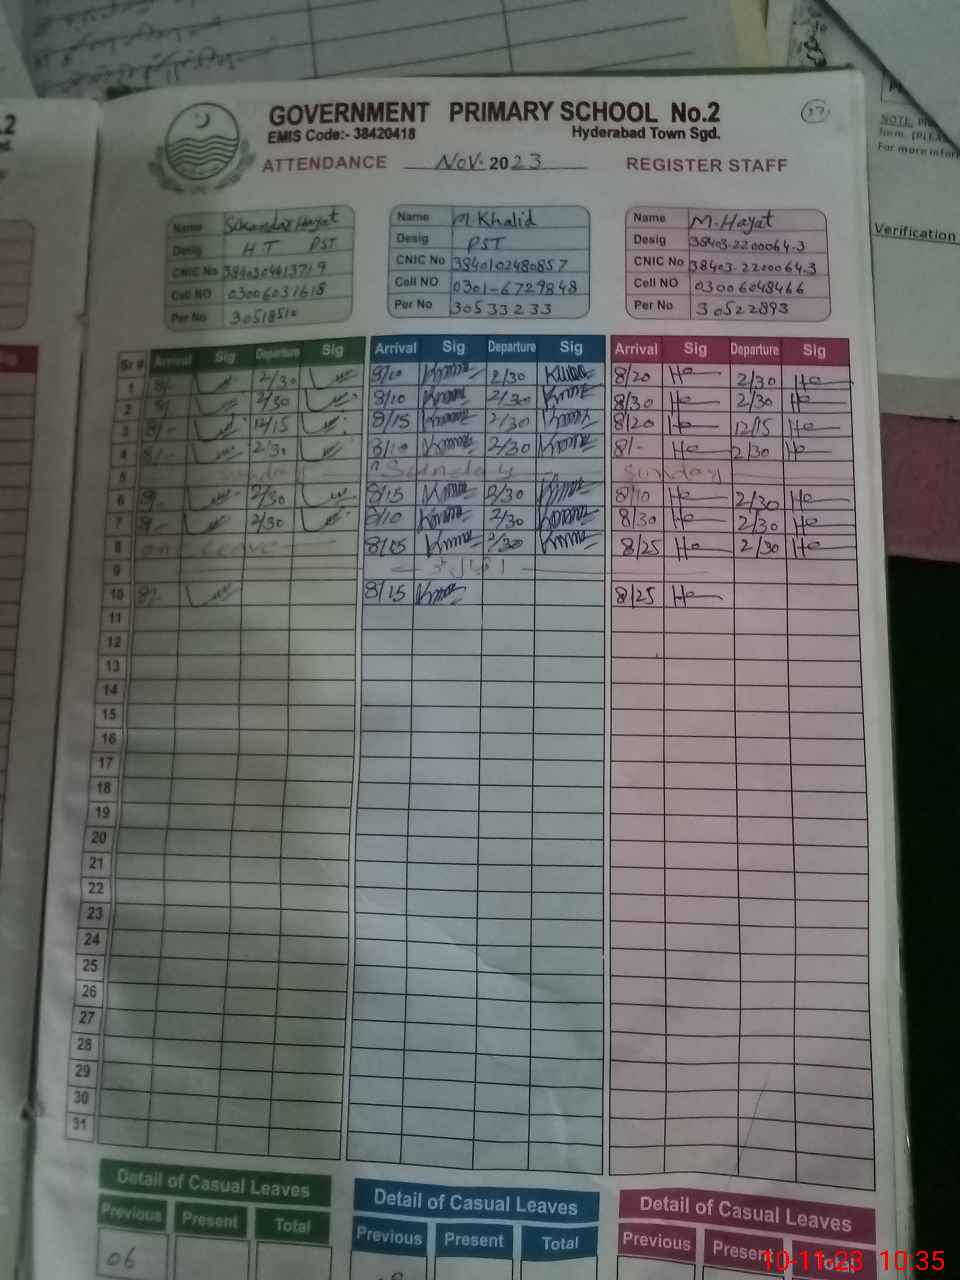 GOVERNMENT PRIMARY SCHOOL No.2
EMIS Code:- 38420418 Hyderabad Town Sgd.
37
ATTENDANCE Nov. 2023 REGISTER STAFF
Name Sikandar Hayat
Desig HT PST
CNIC No 3840304413719
Cell NO 03006031618
Per No 30518510
Name M.Khalid
Desig PST
CNIC No 3840102480857
Cell NO 0301-6729848
Per No 30533233
Name M.Hayat
Desig 38403-2200064-3
CNIC No 38403-2200064-3
Cell NO 03006048466
Per No 30522893
Sr # Arrival Sig Departure Sig Arrival Sig Departure Sig Arrival Sig Departure Sig
1 8/- 2/30 8/10 2/30 8/20 2/30
2 8/ 2/30 8/10 2/30 8/30 2/30
3 8/- 12/15 8/15 2/30 8/20 12/15
4 8/- 2/30 8/10 2/30 8/- 2/30
5 Sunday Sunday Sunday
6 8/- 2/30 8/15 2/30 8/10 2/30
7 8/- 2/30 8/10 2/30 8/30 2/30
8 on leave 8/05 2/30 8/25 2/30
9
10 8/- 8/15 8/25
11
12
13
14
15
16
17
18
19
20
21
22
23
24
25
26
27
28
29
30
31
Detail of Casual Leaves Detail of Casual Leaves Detail of Casual Leaves
Previous Present Total Previous Present Total Previous Present Total
06
NOTE:
form. (PLEA
For more infor
Verification
.2
Sig
10-11-23 10:35